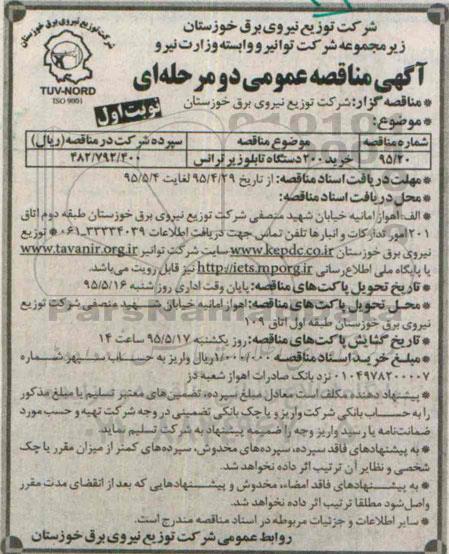 شرکت توزیع نیروی برق خوزستان
زیر مجموعه شرکت توانیر و وابسته وزارت نیرو
شرکت توزیع نیروی برق خوزستان
TUV-NORD
ISO 9001
آگهی مناقصه عمومی دو مرحله‌ای
نوبت اول
* مناقصه گزار: شرکت توزیع نیروی برق خوزستان
* موضوع:
شماره مناقصه موضوع مناقصه سپرده شرکت در مناقصه (ریال)
۹۵/۲۰ خرید ۲۰۰ دستگاه تابلو زیر ترانس ۴۸۲/۷۹۲/۴۰۰
* مهلت دریافت اسناد مناقصه: از تاریخ ۹۵/۴/۲۹ لغایت ۹۵/۵/۴
* محل دریافت اسناد مناقصه:
- الف: اهواز امانیه خیابان شهید منصفی شرکت توزیع نیروی برق خوزستان طبقه دوم اتاق
۲۰۱ امور تدارکات و انبارها تلفن تماس جهت دریافت اطلاعات ۳۳۳۳۴۰۳۹-۰۶۱ * توزیع
نیروی برق خوزستان www.kepdc.co.ir سایت شرکت توانیر www.tavanir.org.ir
یا پایگاه ملی اطلاع رسانی http://iets.mporg.ir نیز قابل رویت می‌باشد.
* تاریخ تحویل پاکت‌های مناقصه: پایان وقت اداری روز شنبه ۹۵/۵/۱۶
* محل تحویل پاکت‌های مناقصه: اهواز امانیه خیابان شهید منصفی شرکت توزیع
نیروی برق خوزستان طبقه اول اتاق ۱۰۹
* تاریخ گشایش پاکت‌های مناقصه: روز یکشنبه ۹۵/۵/۱۷ ساعت ۱۴
* مبلغ خرید اسناد مناقصه: ۱/۰۰۰/۰۰۰ ریال واریز به حساب سپهر شماره
۰۱۰۴۹۷۸۲۰۰۰۰۷ نزد بانک صادرات اهواز شعبه دز
* پیشنهاد دهنده مکلف است معادل مبلغ سپرده، تضمین‌های معتبر تسلیم یا مبلغ مذکور
را به حساب بانکی شرکت واریز و یا چک بانکی تضمینی در وجه شرکت تهیه و حسب مورد
ضمانت‌نامه یا رسید واریز وجه را ضمیمه پیشنهاد به شرکت تسلیم نماید.
* به پیشنهادهای فاقد سپرده، سپرده‌های مخدوش، سپرده‌های کمتر از میزان مقرر یا چک
شخصی و نظایر آن ترتیب اثر داده نخواهد شد.
* به پیشنهادهای فاقد امضاء، مخدوش و پیشنهادهایی که بعد از انقضای مدت مقرر
واصل شود مطلقا ترتیب اثر داده نخواهد شد.
* سایر اطلاعات و جزئیات مربوطه در اسناد مناقصه مندرج است.
روابط عمومی شرکت توزیع نیروی برق خوزستان